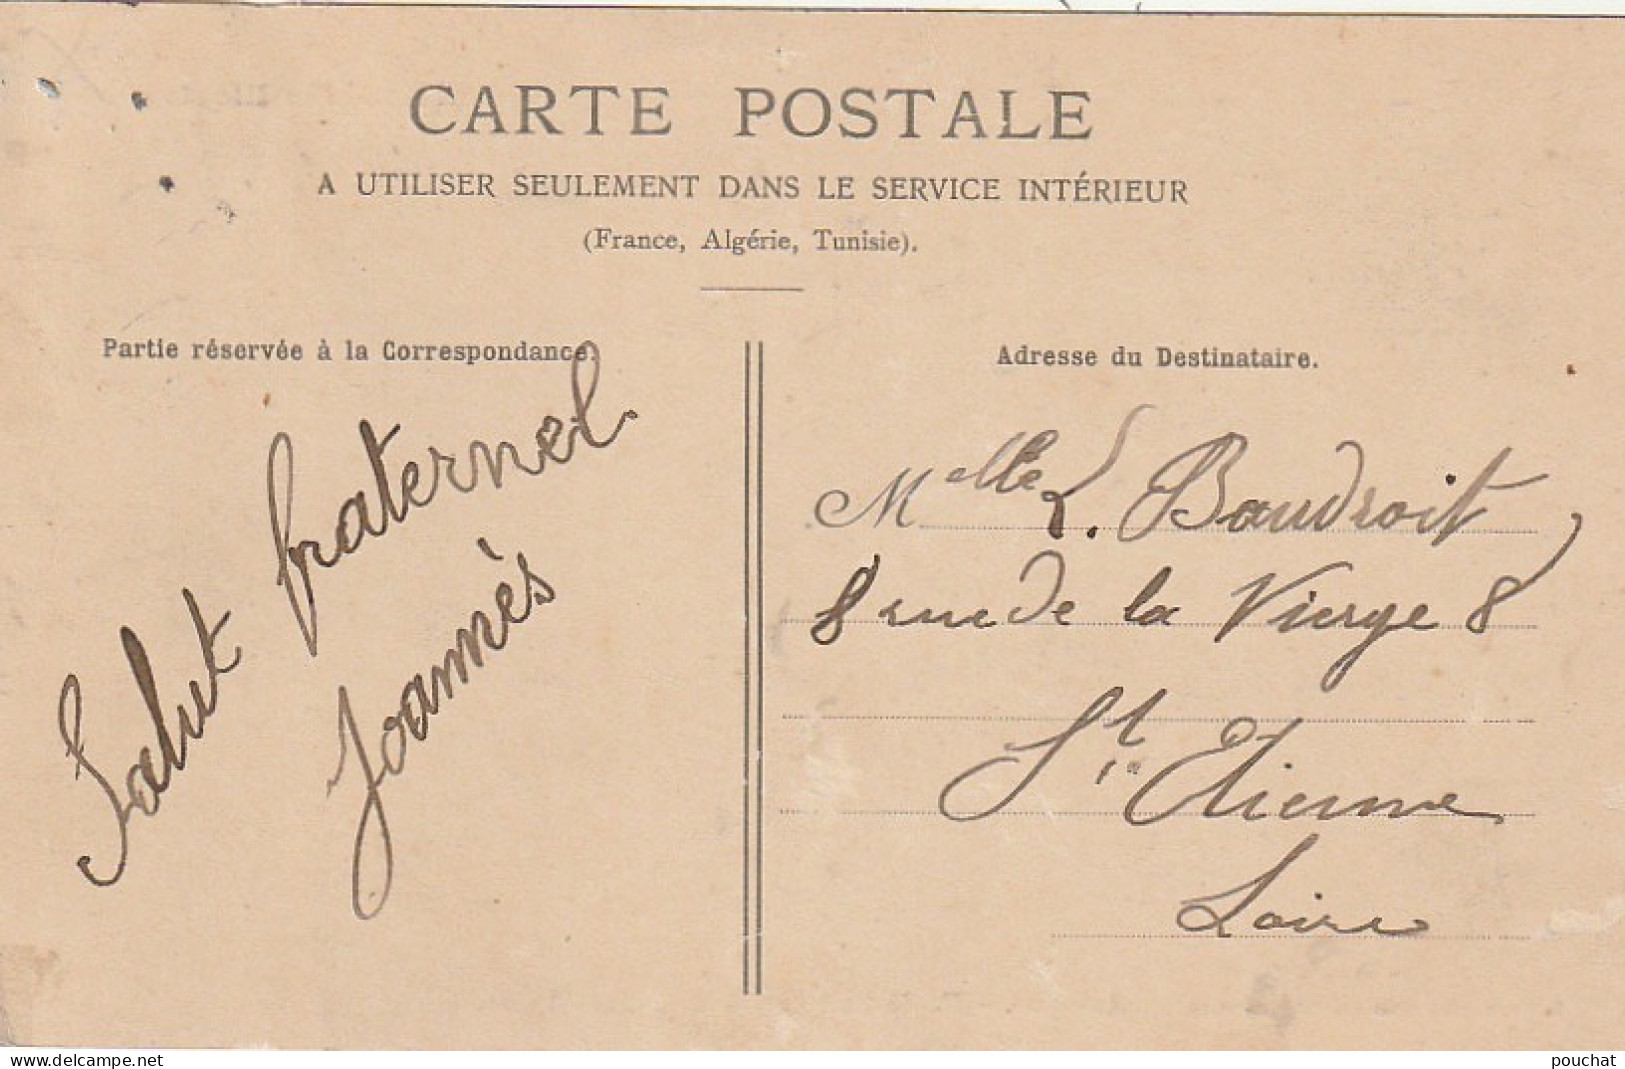 CARTE POSTALE
A UTILISER SEULEMENT DANS LE SERVICE INTÉRIEUR
(France, Algérie, Tunisie).
Partie réservée à la Correspondance.
Salut fraternel
Joannès
Adresse du Destinataire.
Melle L. Baudroit
8 rue de la Vierge 8
St Etienne
Loire
www.delcampe.net
pouchat